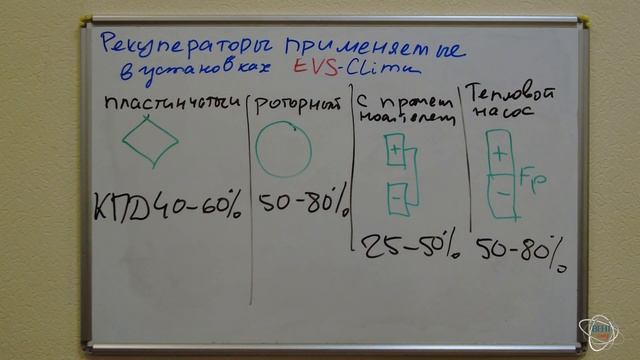 Рекуператоры применяемые
в установках EVS-Clima
пластинчатый
роторный
с промеж
носителем
Тепловой
насос
+
-
+
-
Fр
КПД 40-60%
50-80%
25-50%
50-80%
ВЕНТ